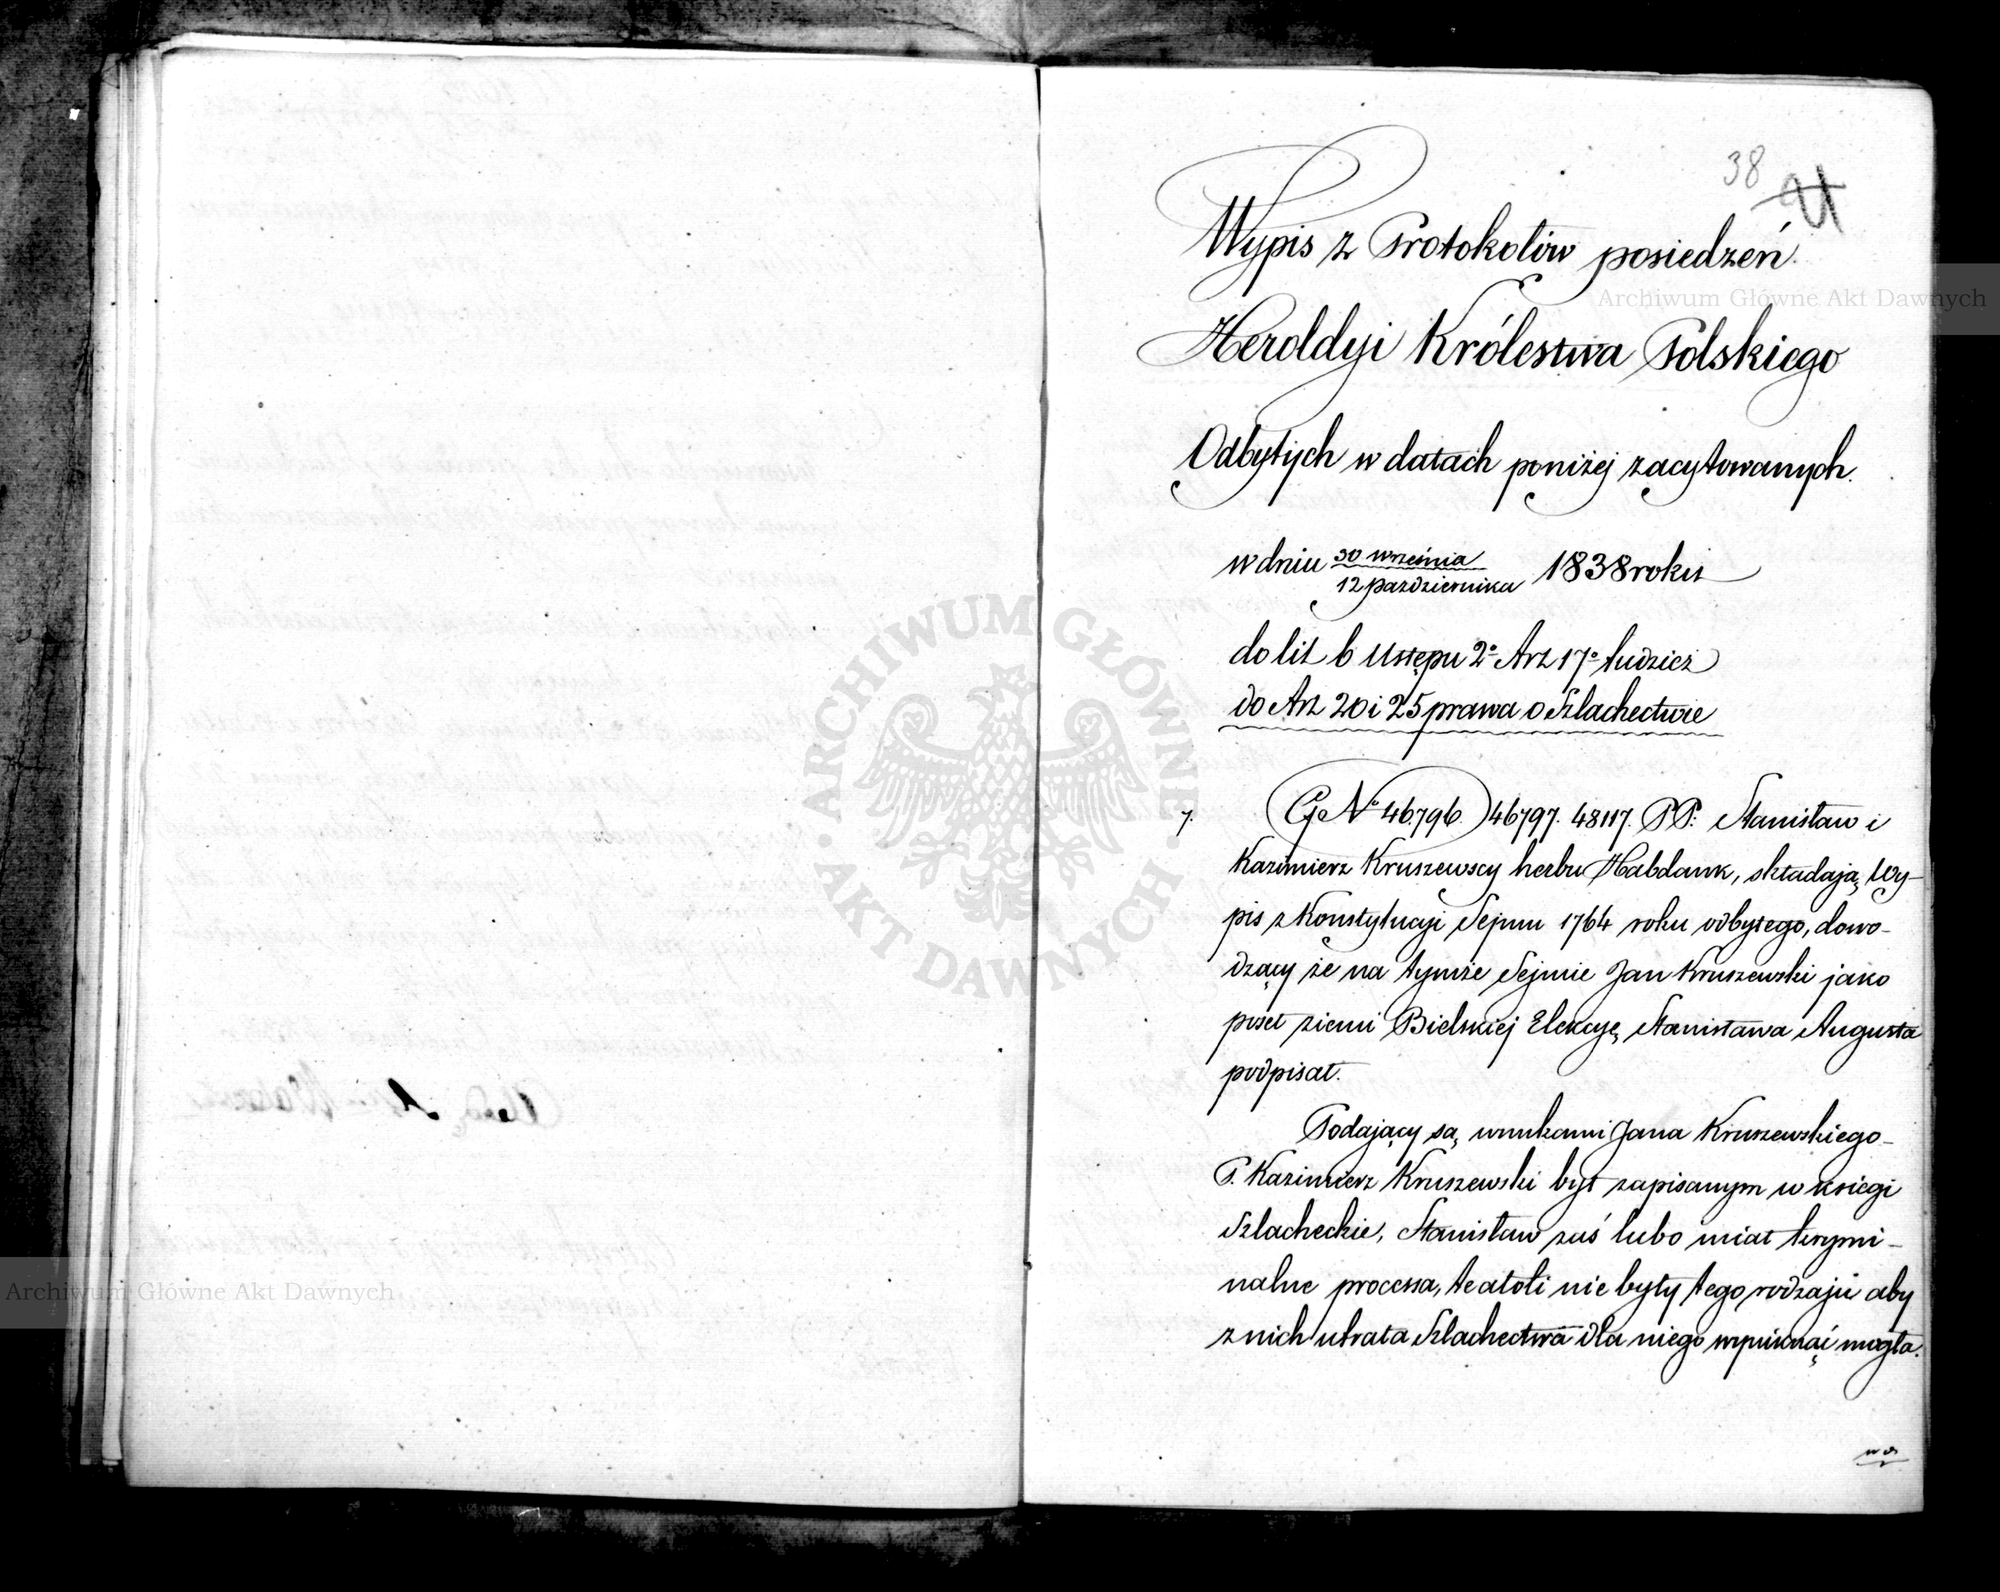 38
Wypis z Protokołów posiedzeń
Archiwum Główne Akt Dawnych
Heroldyi Królestwa Polskiego
Odbytych w datach poniżej zacytowanych.
w dniu 30 września / 12 października 1838 roku
do lit b Ustępu 2º Art 17º tudzież
do Art 20 i 25 prawa o Szlachectwie
7. G Nº 46796. 46797. 48117. PP: Stanisław i
Kazimierz Kruszewscy herbu Habdank, składają Wy-
pis z Konstytucyi Sejmu 1764 roku odbytego, dowo-
dzący że na tymże Sejmie Jan Kruszewski jako
poseł ziemi Bielskiej Elekcyę Stanisława Augusta
podpisał.
Podający są wnukami Jana Kruszewskiego
P. Kazimierz Kruszewski był zapisanym w księgi
Szlacheckie, Stanisław zaś lubo miał krymi-
nalne processa, te atoli nie były tego rodzaju aby
z nich utrata Szlachectwa dla niego wypłynąć mogła.
ARCHIWUM GŁÓWNE
AKT DAWNYCH
Archiwum Główne Akt Dawnych